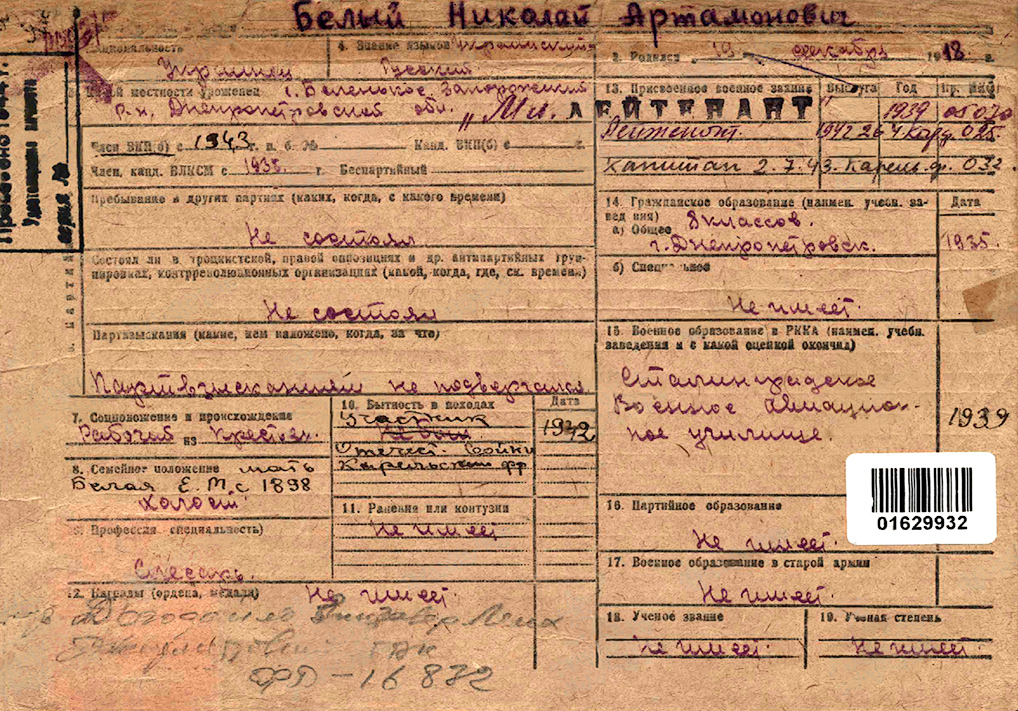 Белый Николай Артамонович
Национальность
Украинец
4. Знание языков Украинский
Русский
2. Родился 19 декабря 1918 г.
3. местности уроженец с. Беленькое Запорожский
р-н, Днепропетровской обл.
"Мл. ЛЕЙТЕНАНТ"
13. Присвоенное военное звание Выслуга Год Пр. НКО
1939 05070
Лейтенант. 1942 26 4 Кар. 025
Капитан 2.7.43. Карель. ф. 032.
Член ВКП(б) с 1943 г. п. б. № Канд. ВКП(б) с г.
Член, канд. ВЛКСМ с 1935. г. Беспартийный
Пребывание в других партиях (каких, когда, с какого времени)
Не состоял
Состоял ли в троцкистской, правой оппозициях и др. антипартийных груп-
пировках, контрреволюционных организациях (какой, когда, где, ск. времени)
Не состоял
Партвзыскания (какие, кем наложено, когда, за что)
Партвзысканиям не подвергался
14. Гражданское образование (наимен. учебн. за-
ведения) Дата
а) Общее 8 классов.
г. Днепропетровск. 1935.
б) Специальное
Не имеет.
15. Военное образование в РККА (наимен. учебн.
заведения и с какой оценкой окончил)
Сталинградское
Военное авиацион-
ное училище. 1939
7. Соцположение и происхождение
Рабочий из крестьян.
8. Семейное положение мать
Белая Е. М. с 1898
холост
9. Профессия (специальность)
Слесарь.
10. Бытность в походах Дата
Участник 1942
Не был
Отечест. Войны
Карельский фр
11. Ранения или контузии
Не имеет
12. Награды (ордена, медали) Не имеет.
ФД-16872
01629932
16. Партийное образование
Не имеет.
17. Военное образование в старой армии
Не имеет.
18. Ученое звание
Не имеет.
19. Ученая степень
Не имеет.